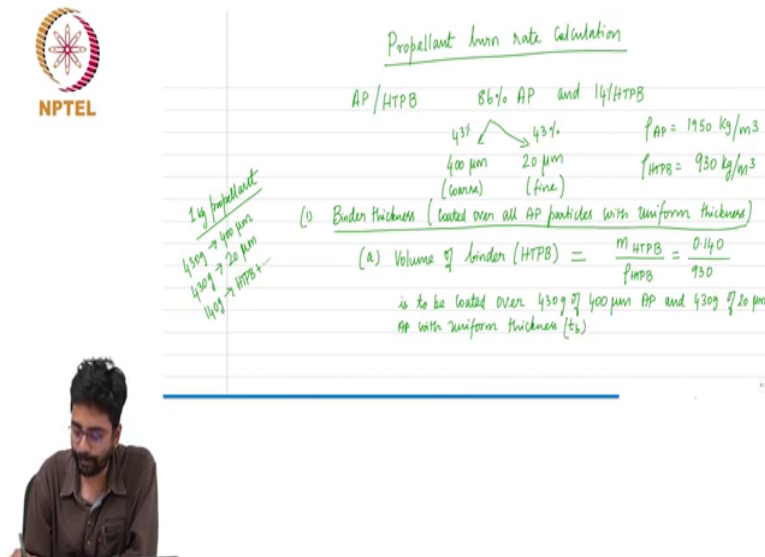 NPTEL
Propellant burn rate Calculation
AP/HTPB 86% AP and 14%HTPB
43% 43%
400 μm 20 μm
(coarse) (fine)
ρAP = 1950 kg/m3
ρHTPB = 930 kg/m3
1 kg propellant
430g → 400 μm
430g → 20 μm
140g → HTPB + ...
(1) Binder thickness (Coated over all AP particles with uniform thickness)
(a) Volume of binder (HTPB) = mHTPB / ρHTPB = 0.140 / 930
is to be coated over 430g of 400 μm AP and 430g of 20 μm
AP with uniform thickness (tb)